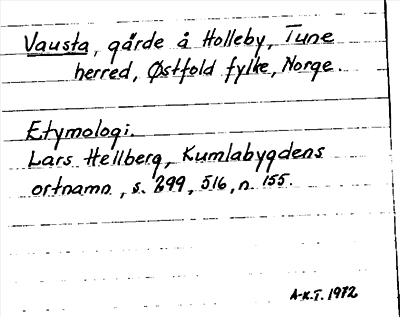 Vausta, gärde å Holleby, Tune
herred, Østfold fylke, Norge.
Etymologi.
Lars Hellberg, Kumlabygdens
ortnamn, s. 299, 516, n. 155.
A-K.T. 1972